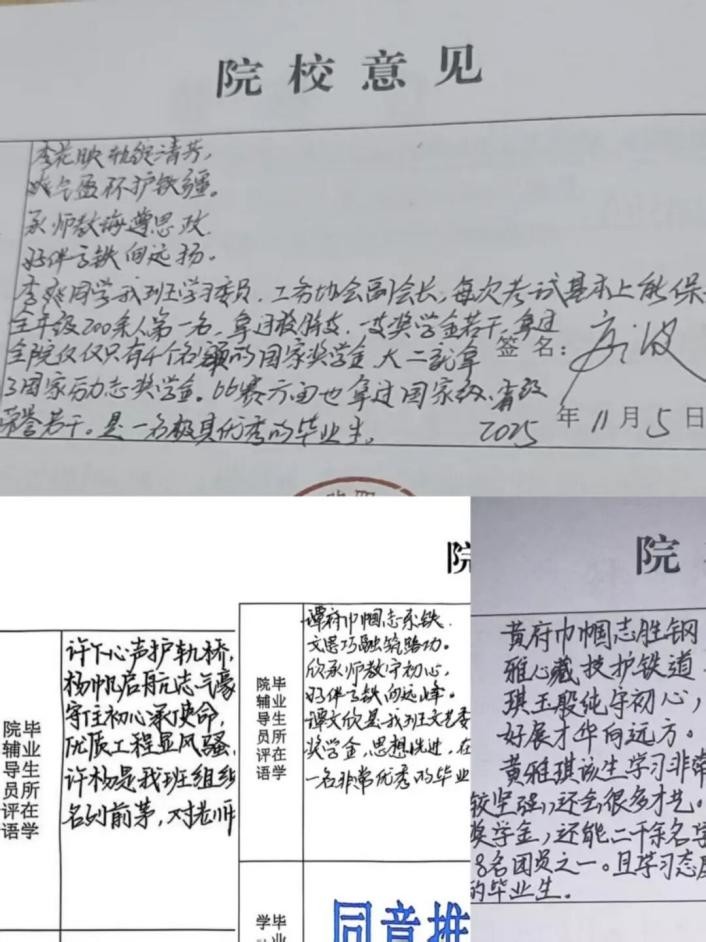 院校意见
李花映轨绽清芳,
爽气盈怀护铁疆。
承师教诲遵思政,
好伴高铁向远扬。
李爽同学我班学习委员,工务协会副会长,每次考试基本上能保
全年级200余人第一名,拿过校特支、一支奖学金若干,拿过
全院仅仅只有4个名额的国家奖学金,大二就拿
了国家励志奖学金。比赛方面也拿过国家级、省级
荣誉若干。是一名极具优秀的毕业生。
签名:
2025年11月5日
院
毕业生所在学
院辅导员评语
许下心声护轨桥,
杨帆启航志气豪
守住初心承使命,
优质工程显风骚。
许杨是我班组织
名列前茅,对老师
毕业生所在学
院辅导员评语
谭府巾帼志系铁
文思巧融筑路功。
欣承师教守初心,
好伴高铁向远峰。
谭文欣是我班文艺委
奖学金,思想先进,在
一名非常优秀的毕业
毕业
学
同意推
院
黄府巾帼志胜钢
雅心藏技护铁道,
琪玉般纯守初心,
好展才华向远方。
黄雅琪该生学习非常
较坚强,还会很多才艺。
奖学金,还能二千余名学
8名团员之一。且学习态度
的毕业生。